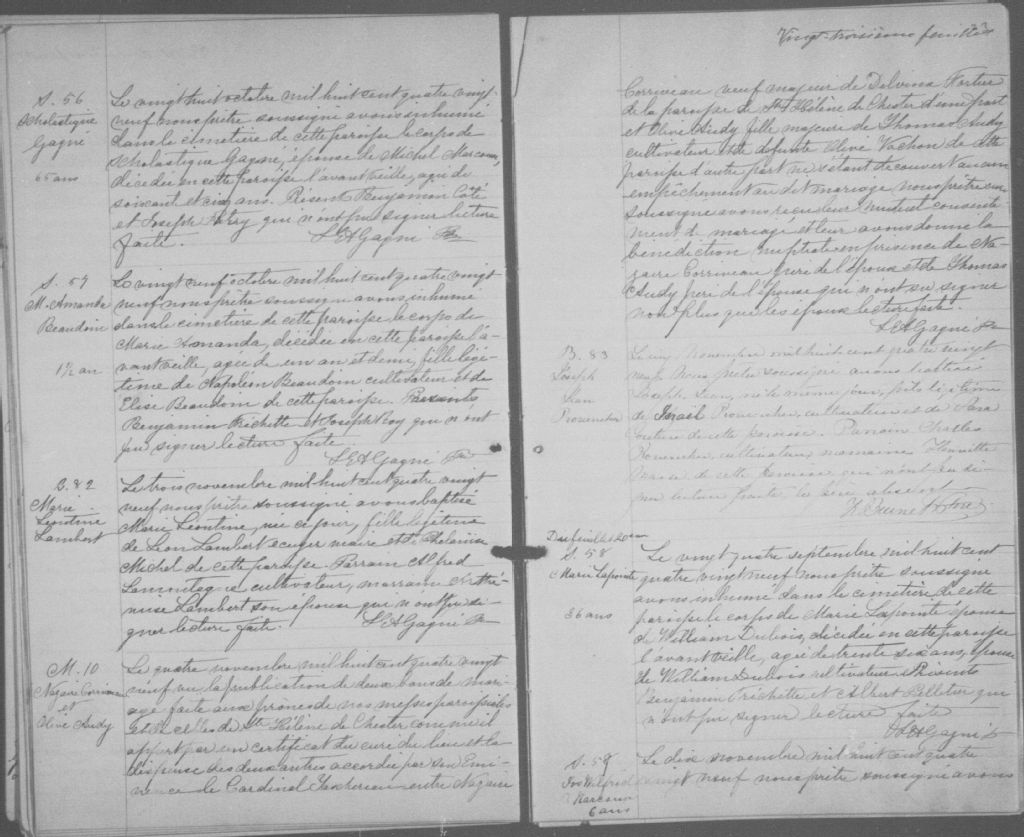 S. 56
Scholastique
Gagné
65 ans
Le vingt huit octobre mil huit cent quatre vingt
neuf nous prêtre soussigné avons inhumé
dans le cimetière de cette paroisse le corps de
Scholastique Gagné, épouse de Michel Marcoux,
décédée en cette paroisse l'avant veille, agée de
soixant et cinq ans. Présent Benjamin Côté
et Joseph qui n'ont pu signer lecture
faite.
LEAGagné Ptre
S. 57
M. Amanda
Beaudoin
1½ an
Le vingt neuf octobre mil huit cent quatre vingt
neuf nous prêtre soussigné avons inhumé
dans le cimetière de cette paroisse le corps de
Marie Amanda, décédée en cette paroisse l'a-
vant veille, agée de un an et demi, fille légi-
time de Napoléon Beaudoin cultivateur et de
Elise Beaudoin de cette paroisse. Présents
Benjamin Frichette et Joseph Roy qui n'ont
pu signer lecture faite.
LEAGagné Ptre
B. 82
Marie
Léontine
Lambert
Le trois novembre mil huit cent quatre vingt
neuf nous prêtre soussigné avons baptisé
Marie Léontine, née ce jour, fille légitime
de Léon Lambert écuyer maire et de
Michel de cette paroisse Parrain Alfred
Lamontagne cultivateur, marraine Arthé-
mise Lambert son épouse qui n'ont pu si-
gner lecture faite.
LEAGagné Ptre
M. 10
Nazaire Corriveau
et
Olive Audy
Le quatre novembre mil huit cent quatre vingt
neuf vu la publication de deux bans de mari-
age faite aux prônes de nos messes paroissiales
et de celles de Ste Hélène de Chester comme il
appert par un certificat du curé du lieu et la
dispense des deux autres accordée par Son Emi-
nence le Cardinal Taschereau entre Nazaire
Vingt-troisième feuillet
23
Corriveau veuf majeur de Delvina Fortier
de la paroisse de Ste Hélène de Chester d'une part
et Olive Audy fille majeure de Thomas Audy
cultivateur et de défunte Olive Vachon de cette
paroisse d'autre part ne s'étant découvert aucun
empêchement au dit mariage nous prêtre
soussigné avons reçu leur mutuel consente
ment de mariage et leur avons donné la
bénédiction nuptiale en présence de Na-
zaire Corriveau père de l'époux et de Thomas
Audy père de l'épouse qui n'ont su signer
non plus que les époux lecture faite.
LEAGagné Ptre
B. 83
Joseph
Léon
Provencher
Le cinq Novembre mil huit cent quatre vingt
neuf Nous prêtre soussigné avons baptisé
Joseph Léon, né le même jour, fils légitime
de Israel Provencher, cultivateur et de Sara
Couture de cette paroisse. Parrain Charles
Provencher, cultivateur, marraine Henriette
de cette paroisse qui n'ont pu si-
gner lecture faite le père absent
Ptre
S. 58
Marie Lapointe
36 ans
Le vingt quatre septembre mil huit cent
quatre vingt neuf nous prêtre soussigné
avons inhumé dans le cimetière de cette
paroisse le corps de Marie Lapointe épouse
de William Dubois, décédée en cette paroisse
l'avant veille, agée de trente six ans, épouse
de William Dubois cultivateur Présents
Benjamin Frichette et Albert Pelletier qui
n'ont pu signer lecture faite
LEAGagné Ptre
S. 58
Jos Wilfrid
Marcoux
6 ans
Le dix novembre mil huit cent quatre
vingt neuf nous prêtre soussigné avons